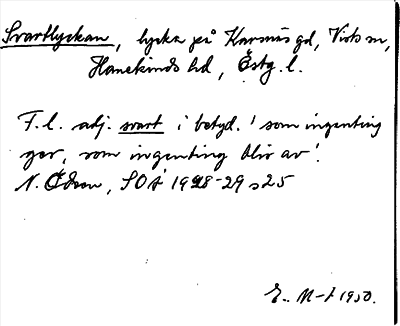 Svartlyckan, lycka på Karsnäs gd, Viets sn,
Hanekinds hd, Östg. l.
F. l. adj. svart i betyd. 'som ingenting
ger, som ingenting blir av'.
N. Ödeen, SOÅ 1928-29 s 25
E. M-t 1950.